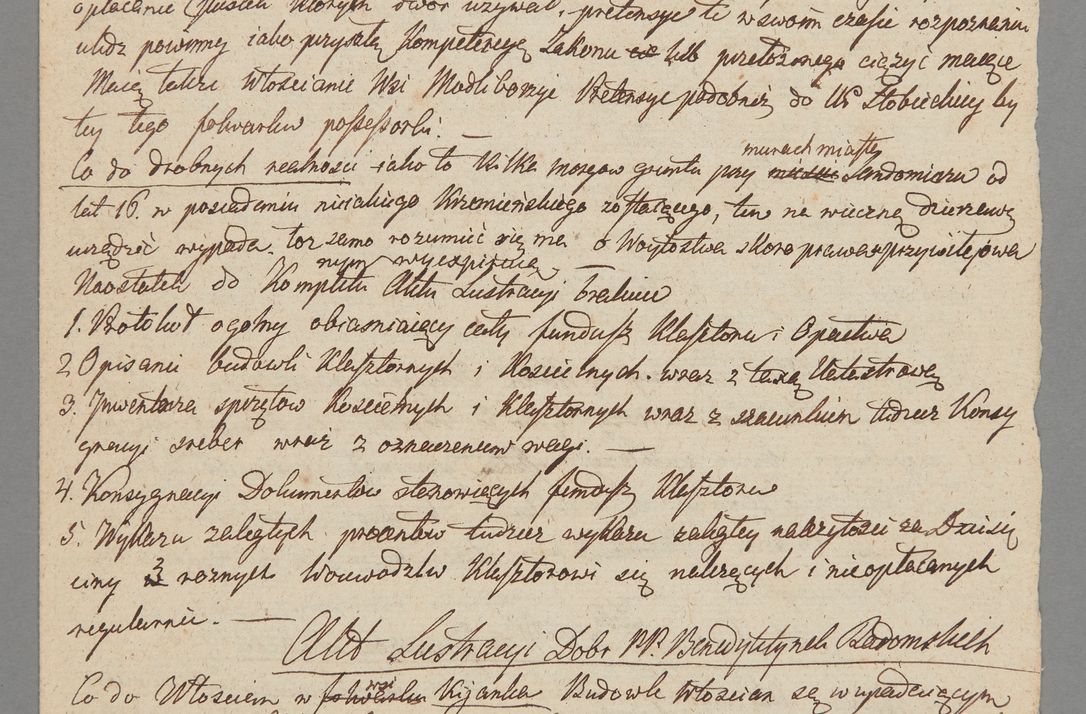 opłacanie Klusek których dwór używał, pretensye te w swoim czasie rozpoznane
ulidz powinny jako przyszłą Kompetencyę Zakonu lub przełożonego ciążyć mające
Maią także Włościanie Wsi Modliborzyc Pretensye podobnież do UR Słobieckiey by
tey tego folwarku possessorki. —
Co do drobnych realności iako to Kilka morgow gruntu przy murach miasta Sandomierza od
lat 16. w posiadaniu nieiakiego Krzemińskiego zostaiącego, ten na wieczną dzierżawę
urządzić wypada. toż samo rozumieć się ma o Woytostwa skoro prawem przywileiowa
nym wyexpiruią —
Naostatek do Kompletu Aktu Lustracyi brakuie
1. Protokół ogólny obiaśniaiący cały fundusz Klasztoru i Opactwa
2 Opisanie budowli Klasztornych i Kościelnych. wraz z taxą Katastrową
3. Inwentarza sprzętow Kościelnych i Klasztornych wraz z szacunkiem tudzież Konsy
gnacyi sreber wraz z oznaczeniem wagi. —
4. Konsygnacyi Dokumentów stanowiących fundusz Klasztoru
5. Wykazu zaległych procentów tudzież wykazu zaległey należytości za Dziesię
ciny z roznych Woiewodztw Klasztorowi się należących i nieopłacanych
regularnie. —
Akt Lustracyi Dobr PP. Benedyktynek Radomskich
Co do Włościan w wsi Kijanka Budowle Włościan są w upadaiącym